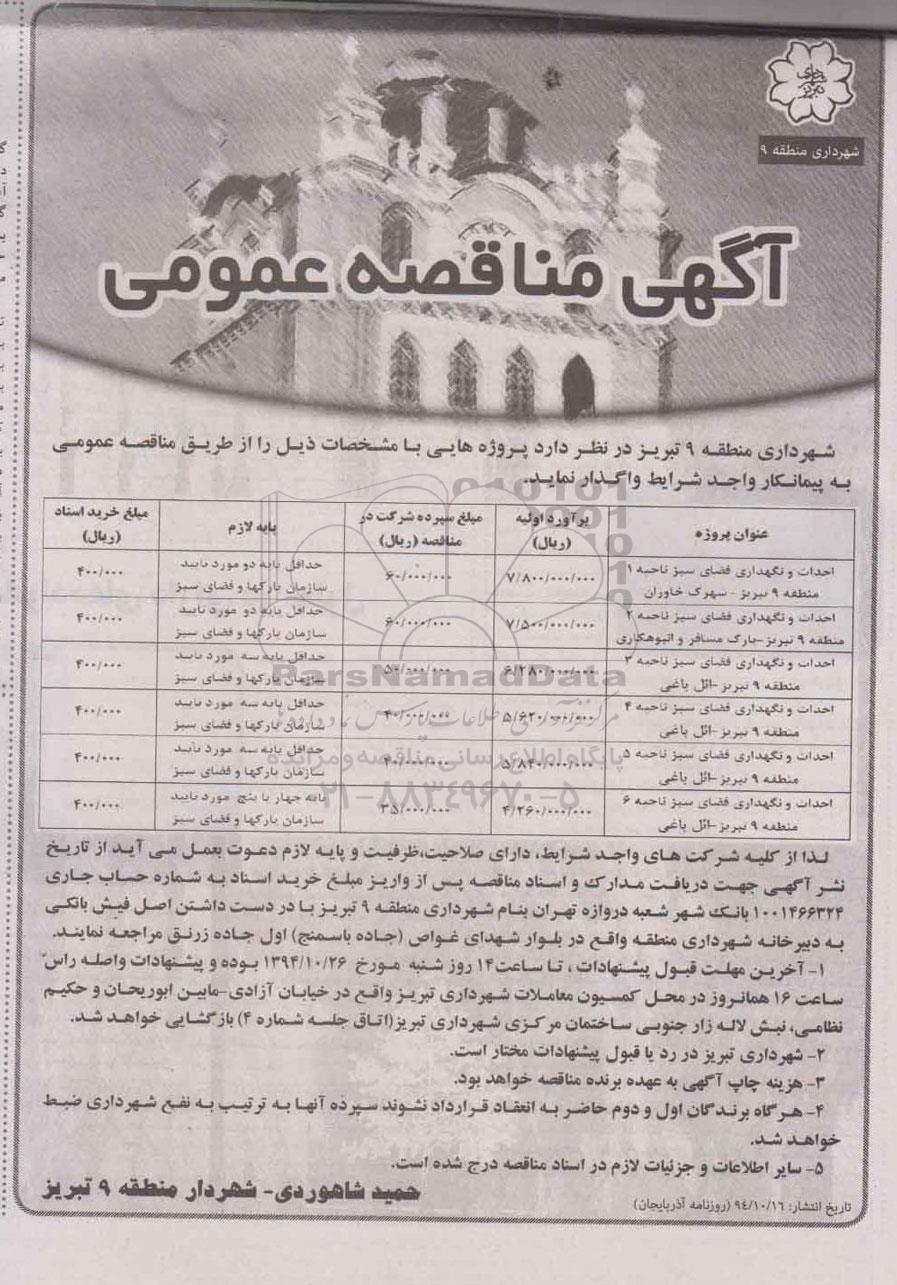 شهرداری تبریز
شهرداری منطقه ۹
آگهی مناقصه عمومی
شهرداری منطقه ۹ تبریز در نظر دارد پروژه هایی با مشخصات ذیل را از طریق مناقصه عمومی
به پیمانکار واجد شرایط واگذار نماید.
عنوان پروژه | برآورد اولیه (ریال) | مبلغ سپرده شرکت در مناقصه (ریال) | پایه لازم | مبلغ خرید اسناد (ریال)
احداث و نگهداری فضای سبز ناحیه ۱ منطقه ۹ تبریز - شهرک خاوران | ۷/۸۰۰/۰۰۰/۰۰۰ | ۶۰/۰۰۰/۰۰۰ | حداقل پایه دو مورد تایید سازمان پارکها و فضای سبز | ۴۰۰/۰۰۰
احداث و نگهداری فضای سبز ناحیه ۲ منطقه ۹ تبریز-پارک مسافر و اتبوهکاری | ۷/۵۰۰/۰۰۰/۰۰۰ | ۶۰/۰۰۰/۰۰۰ | حداقل پایه دو مورد تایید سازمان پارکها و فضای سبز | ۴۰۰/۰۰۰
احداث و نگهداری فضای سبز ناحیه ۳ منطقه ۹ تبریز-ائل یاغی | ۶/۲۸۰/۰۰۰/۰۰۰ | ۵۰/۰۰۰/۰۰۰ | حداقل پایه سه مورد تایید سازمان پارکها و فضای سبز | ۴۰۰/۰۰۰
احداث و نگهداری فضای سبز ناحیه ۴ منطقه ۹ تبریز-ائل یاغی | ۵/۶۲۰/۰۰۰/۰۰۰ | ۴۰/۰۰۰/۰۰۰ | حداقل پایه سه مورد تایید سازمان پارکها و فضای سبز | ۴۰۰/۰۰۰
احداث و نگهداری فضای سبز ناحیه ۵ منطقه ۹ تبریز-ائل یاغی | ۵/۸۴۰/۰۰۰/۰۰۰ | ۴۰/۰۰۰/۰۰۰ | حداقل پایه سه مورد تایید سازمان پارکها و فضای سبز | ۴۰۰/۰۰۰
احداث و نگهداری فضای سبز ناحیه ۶ منطقه ۹ تبریز-ائل یاغی | ۴/۲۶۰/۰۰۰/۰۰۰ | ۳۵/۰۰۰/۰۰۰ | پایه چهار یا پنج مورد تایید سازمان پارکها و فضای سبز | ۴۰۰/۰۰۰
ParsNamadData
پایگاه اطلاع رسانی مناقصه و مزایده
۰۲۱-۸۸۳۴۹۶۷۰-۵
لذا از کلیه شرکت های واجد شرایط، دارای صلاحیت،ظرفیت و پایه لازم دعوت بعمل می آید از تاریخ
نشر آگهی جهت دریافت مدارک و اسناد مناقصه پس از واریز مبلغ خرید اسناد به شماره حساب جاری
۱۰۰۱۴۶۶۳۲۴ بانک شهر شعبه دروازه تهران بنام شهرداری منطقه ۹ تبریز با در دست داشتن اصل فیش بانکی
به دبیرخانه شهرداری منطقه واقع در بلوار شهدای غواص (جاده باسمنج) اول جاده زرنق مراجعه نمایند.
۱- آخرین مهلت قبول پیشنهادات ، تا ساعت۱۴ روز شنبه مورخ ۱۳۹۴/۱۰/۲۶ بوده و پیشنهادات واصله راس
ساعت ۱۶ همانروز در محل کمسیون معاملات شهرداری تبریز واقع در خیابان آزادی-مابین ابوریحان و حکیم
نظامی، نبش لاله زار جنوبی ساختمان مرکزی شهرداری تبریز(اتاق جلسه شماره ۴) بازگشایی خواهد شد.
۲- شهرداری تبریز در رد یا قبول پیشنهادات مختار است.
۳- هزینه چاپ آگهی به عهده برنده مناقصه خواهد بود.
۴- هرگاه برندگان اول و دوم حاضر به انعقاد قرارداد نشوند سپرده آنها به ترتیب به نفع شهرداری ضبط
خواهد شد.
۵- سایر اطلاعات و جزئیات لازم در اسناد مناقصه درج شده است.
حمید شاهوردی- شهردار منطقه ۹ تبریز
تاریخ انتشار: ۹٤/۱۰/۱٦ (روزنامه آذربایجان)